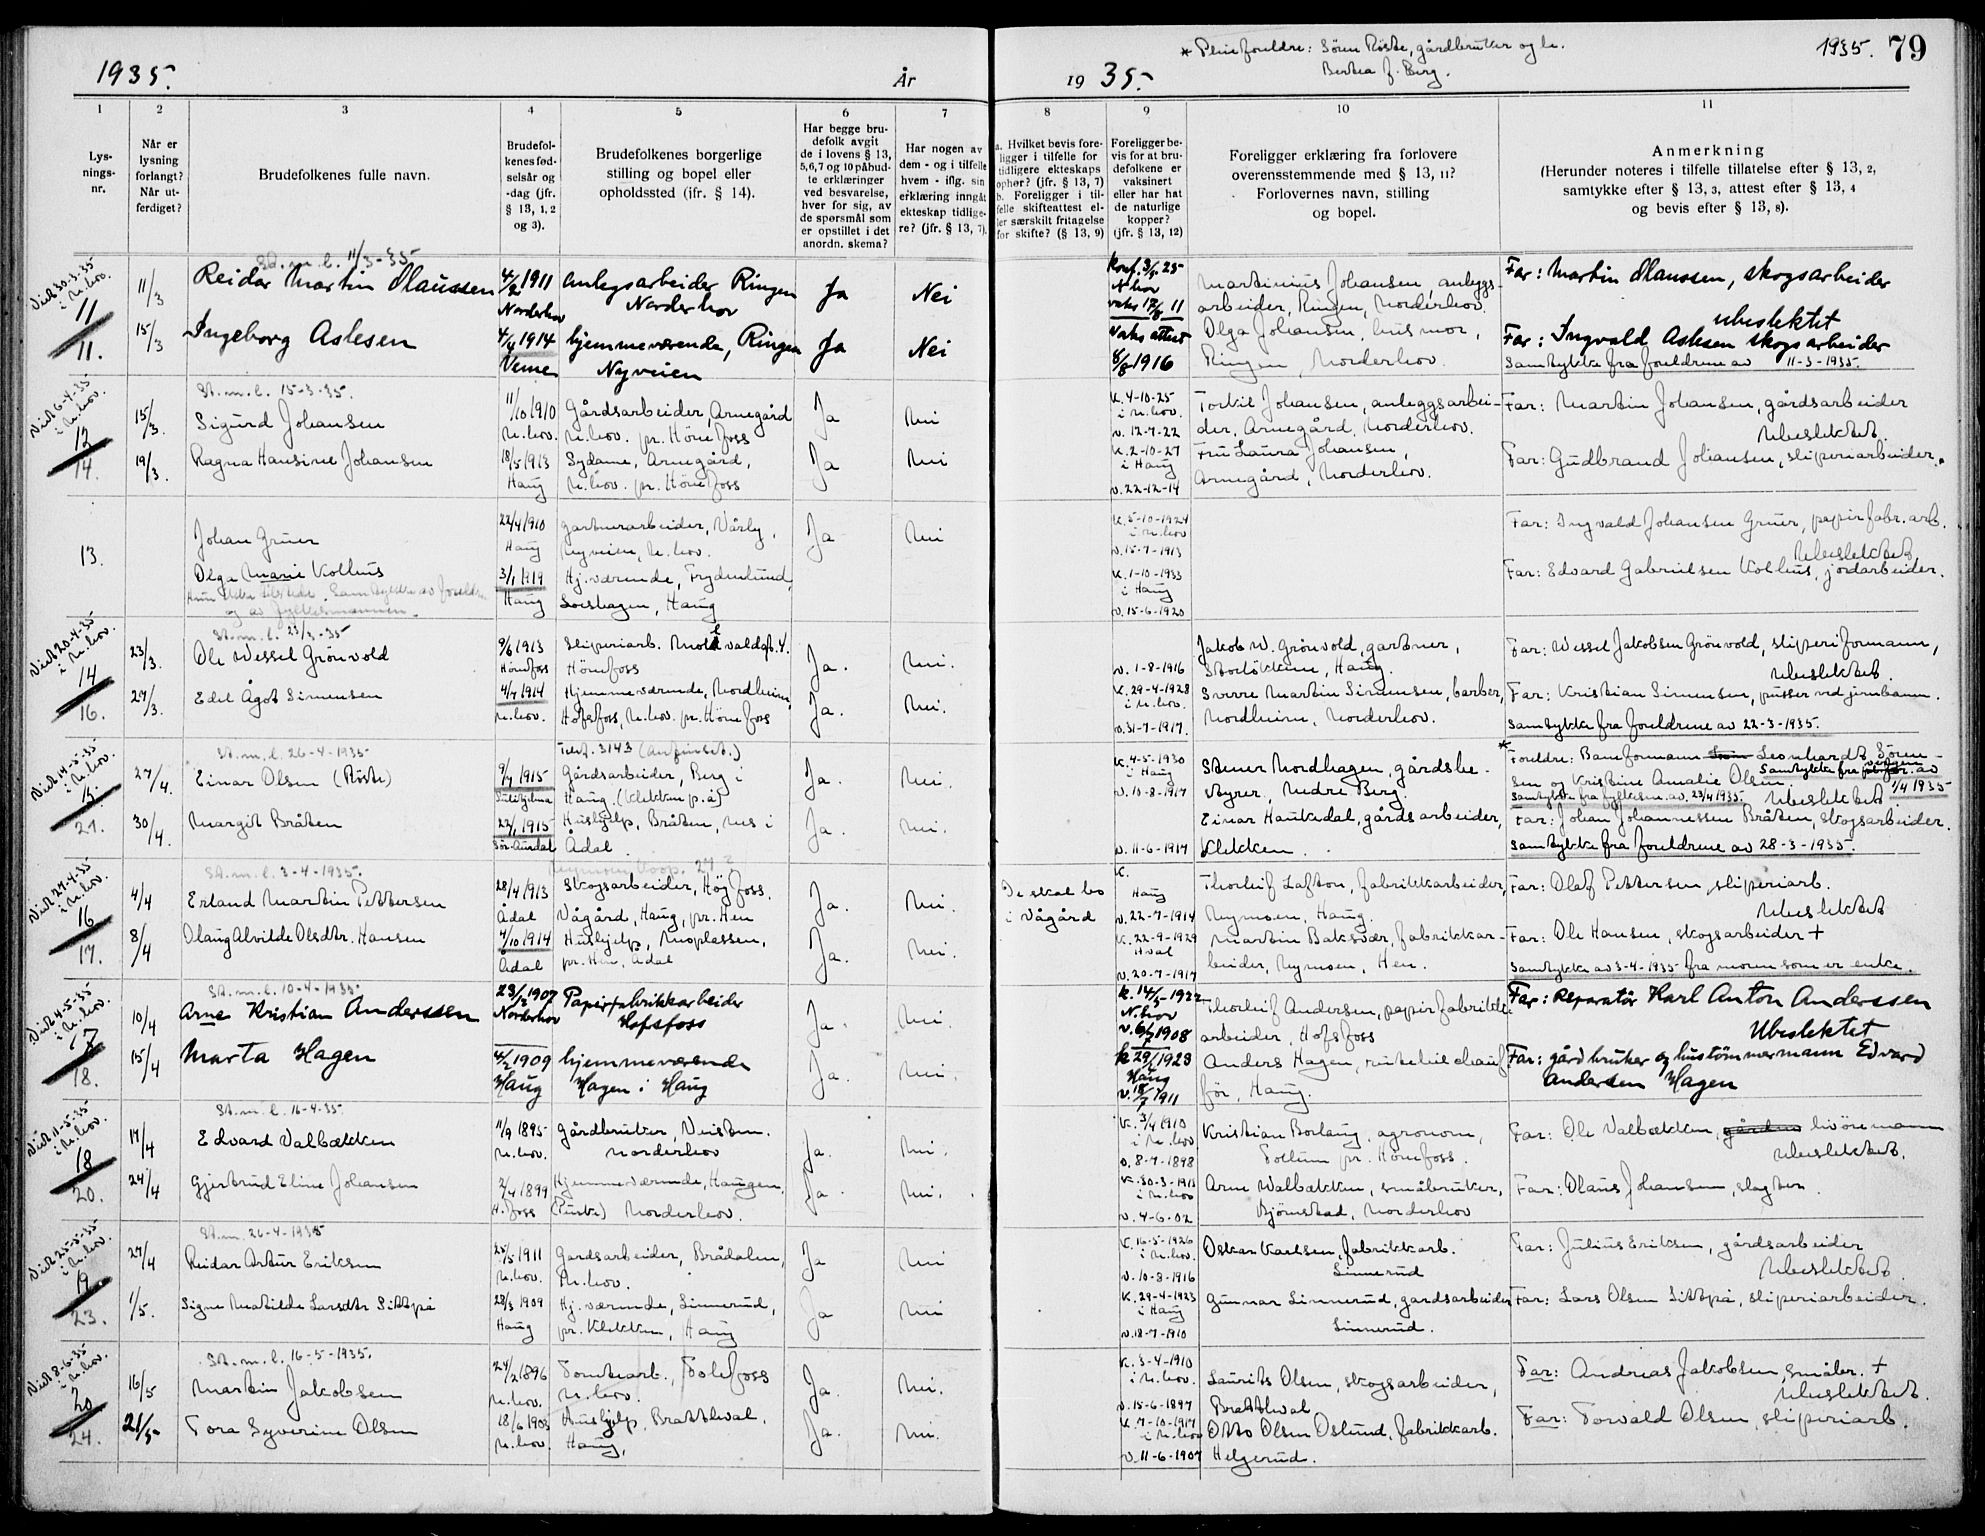 1935.
År
1
2
3
4
5
6
7
Lys-
nings-
nr.
Når er
lysning
forlangt?
Når ut-
ferdiget?
Brudefolkenes fulle navn.
Brudefol-
kenes fød-
selsår og
-dag (jfr.
§ 13, 1, 2
og 3).
Brudefolkenes borgerlige
stilling og bopel eller
opholdssted (ifr. § 14).
Har begge bru-
defolk avgit
de i lovens § 13,
5,6,7 og 10 påbud-
te erklæringer
ved besvarelse,
hver for sig, av
de spørsmål som
er opstillet i det
anordn. skema?
Har nogen av
dem - og i tilfelle
hvem - iflg. sin
erklæring inngåt
ekteskap tidlige-
re? (jfr. § 13, 7).
St. m. l. 11/3-35
Viet 30-3-35
i N.hov.
11
11/3
Reidar Martin Olaussen
4/2 1911
Norderhov
anlegsarbeider Ringen
Norderhov
Ja
Nei
11.
15/3
Ingeborg Aslesen
4/4 1914
Veme
hjemmeværende, Ringen
Nyveien
Ja
Nei
St. m. l. 15-3-35.
Viet 6-4-35
i N.hov.
12
15/3.
Sigurd Johansen
11/10 1910
N.hov.
Gårdsarbeider, Arnegård
N.hov. pr. Hönefoss
Ja
Nei
14.
19/3.
Ragna Hansine Johansen
18/5 1913
Haug
Sydame, Arnegård,
N.hov. pr. Hönefoss
Ja
Nei
13.
Johan Gruer
22/4 1910
Haug
gartnerarbeider, Vårly,
Nyveien, N.hov.
Ja
Nei
Olga Marie Kolhus
3/1 1919
Haug
Hj. værende, Frydenlund,
Haug
og av fylkesmannen.
St. m. l. 23/3-35
Viet 20-4-35
i N.hov.
14
23/3.
Ole Wessel Grönvold
9/6 1913
Hönefoss
Sliperiarb.
Hönefoss
Ja.
Nei.
16.
27/3.
Edel Ågot Simensen
4/7 1914
N.hov.
Hjemmeværende, Nordheim,
Hofsfoss, N.hov. pr. Hönefoss
Ja.
Nei.
St. m. l. 26-4-1935
Viet 14-5-35
i N.hov.
15
27/4.
Einar Olsen (Röste)
9/7 1915
Gårdsarbeider, Berg i
Haug. (Klekken p.å)
Ja.
Nei.
21.
30/4.
Margit Bråten
22/1 1915
Sör-Aurdal
Hushjelp, Bråten, Nes i
Ådal.
Ja.
Nei.
St. m. l. 3-4-1935.
Viet 27-4-35
i N.hov.
16
4/4
Erland Martin Pettersen
28/4 1913
Ådal
Skogsarbeider, Högfoss,
Vågård, Haug, pr. Hen
Ja.
Nei.
17.
8/4
Olaug Alvilde Olsdtr. Hansen
4/10 1914
Ådal
Hushjelp, Moplassen,
pr. Hen, Ådal
Ja.
Nei.
St. m. l. 10-4-1935
Viet 4-5-35
i N.hov.
17
10/4
Arne Kristian Anderssen
23/3 1907
Norderhov
Papirfabrikkarbeider
Hofsfoss
Ja.
Nei.
18.
15/4
Marta Hagen
4/2 1909
Haug
hjemmeværende
Hagen i Haug
Ja.
Nei.
St. m. l. 16-4-35.
Viet 11-5-35
i N.hov.
18
17/4
Edvard Valbekken
11/9 1895
N.hov.
Gårdbruker, Veisten.
Norderhov
Ja.
Nei.
20.
24/4
Gjertrud Eline Johansen
2/4 1899
H.foss
Hjemmeværende, Haugen,
Norderhov.
Ja.
Nei.
St. m. 26-4-1935
Viet 25-5-35
i N.hov.
19
27/4
Reidar Artur Eriksen
25/5 1911
N.hov.
Gardsarbeider, Brådalen,
N.hov.
Ja
Nei
23.
1/5.
Signe Matilde Larsdtr Sittpå
28/3 1909
Haug
Hj. værende, Sinnerud,
pr. Klekken, Haug
Ja
Nei
St. m. l. 16-5-1935.
Viet 8-6-35
i N.hov.
20
16/5
Martin Jakobsen
24/2 1896
N.hov.
Tomtearb., Follefoss
N.hov
Ja.
Nei.
24.
21/5
Tora Syverine Olsen
18/6 1903
N.hov.
Hushjelp, Brattleval,
Haug,
Ja.
Nei.
* Pleieforeldre: Sören Röste, gårdbruker og h.
Bertea f. Berg.
1935.
79
19 35.
8
9
10
11
a. Hvilket bevis fore-
ligger i tilfelle for
tidligere ekteskaps
ophør? (jfr. § 13, 7)
b. Foreligger i til-
felle skifteattest el-
ler særskilt fritagelse
for skifte? (§ 13, 9)
Foreligger be-
vis for at bru-
defolkene er
vaksinert
eller har hat
de naturlige
kopper?
(jfr. § 13, 12)
Foreligger erklæring fra forlovere
overensstemmende med § 13, 11?
Forlovernes navn, stilling
og bopel.
Anmerkning
(Herunder noteres i tilfelle tillatelse efter § 13, 2,
samtykke efter § 13, 3, attest efter § 13, 4
og bevis efter § 13, 8).
N.hov
vaks 17/8 11
Martinius Johansen, anleggs-
arbeider, Ringen, Norderhov
Far: Martin Olaussen, skogsarbeider
ubeslektet
Vaks attest
8/8 1916
Olga Johansen, husmor,
Ringen, Norderhov
Far: Ingvald Aslesen skogsarbeider
Samtykke fra foreldrene av 11-3-1935.
K. 4-10-25
i N.hov.
v. 12-7-22
Torkil Johansen, anleggsarbei-
der, Arnegård, Norderhov.
Far: Martin Johansen, gårdsarbeider
Ubeslektet
K. 2-10-27
i Haug
v. 22-12-14
Fru Laura Johansen,
Arnegård, Norderhov.
Far: Gudbrand Johansen, sliperiarbeider.
K. 5-10-1924
i N.hov
v. 15-7-1913
Far: Ingvald Johansen Gruer, papirfabr.arb.
Ubeslektet
K. 1-10-1933
i Haug
v. 15-6-1920
Far: Edvard Gabrielsen Kolhus, jordarbeider.
v. 1-8-1916
Jakob W. Grönvold, gartner,
Storlökken, Haug.
Far: Wessel Jakobsen Grönvold, sliperiformann,
Ubeslektet.
K. 29-4-1928
i N.hov.
v. 31-7-1917.
Sverre Martin Simensen, barber,
Nordheim, Norderhov.
Far: Kristian Simensen, pusser ved jernbanen.
Samtykke fra foreldrene av 22-3-1935.
K. 4-5-1930
i Haug
v. 10-8-1917
Steinar Nordhagen, gårdsbe-
styrer, Nedre Berg.
* Foreldre: Baneformann Leonhardt Sören-
sen og Kristine Amalie Olsen.
Samtykke fra fylkesm. av 23/4 1935
Ubeslektet
v. 11-6-1917
Einar Haukedal, gårdsarbeider,
Klekken.
Far: Johan Johannessen Bråten, skogsarbeider.
Samtykke fra foreldrene av 28-3-1935.
De skal bo
i Vågård
K.
Haug
v. 22-7-1914
Thorleif Lafton, fabrikkarbeider,
Nymoen, Haug.
Far: Olaf Pettersen, sliperiarb.
Ubeslektet
K. 22-9-1929
Hval
v. 20-7-1917
Martin Baksvær, fabrikkar-
beider, Nymoen, Hen.
Far: Ole Hansen, skogsarbeider +
Samtykke av 3-4-1935 fra moren som er enke.
k. 14/5-1922
N.hov
v. 6/7 1908
Thorleif Andersen, papirfabrikk-
arbeider, Hofsfoss
Far: Reparatör Karl Anton Anderssen
Ubeslektet
k 29/4 1923
Haug
v. 18/7 1911
Anders Hagen, rutebilchauf-
för, Haug.
Far: gårdbruker og hustömmermann Edvard
Andersen Hagen
K. 3/4 1910
i N.hov
v. 8-7-1898
Kristian Borlaug, agronom,
Tollum pr. Hönefoss.
Far: Ole Valbekken, livöremann
Ubeslektet.
K. 30-3-1913
i N.hov
v. 4-6-02
Arne Walbekken, småbruker,
Bjørnstad, Norderhov
Far: Olaus Johansen, slagter.
K. 16-5-1926
i N.hov.
v. 10-8-1916
Oskar Karlsen, fabrikkarb.
Sinnerud
Far: Julius Eriksen, gårdsarbeider
Ubeslektet.
K. 29-4-1923
i Haug
v. 18-7-1910
Gunnar Sinnerud, gardsarbeider
Sinnerud.
Far: Lars Olsen Sittpå, sliperiarbeider.
K. 3-4-1910
i N.hov.
v. 15-6-1897
Laurits Olsen, skogsarbeider,
Brattleval
Far: Andreas Jakobsen, småbr. +
Ubeslektet.
K. 7-10-1917
i N.hov
v. 11-6-1907
Otto Olsen Oslund, fabrikkarb.
Helgerud.
Far: Torvald Olsen, sliperiarb.